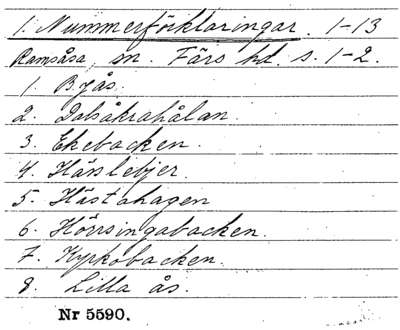 1. Nummerförklaringar. 1-13
Ramsåsa, sn. Färs hd. s. 1-2.
1. Byås
2. Dalsåkrahålan.
3. Ekebacken.
4. Hässlebjer.
5. Hästahagen
6. Hörrsingabacken.
7. Kyrkobacken.
8. Lilla ås.
Nr 5590.